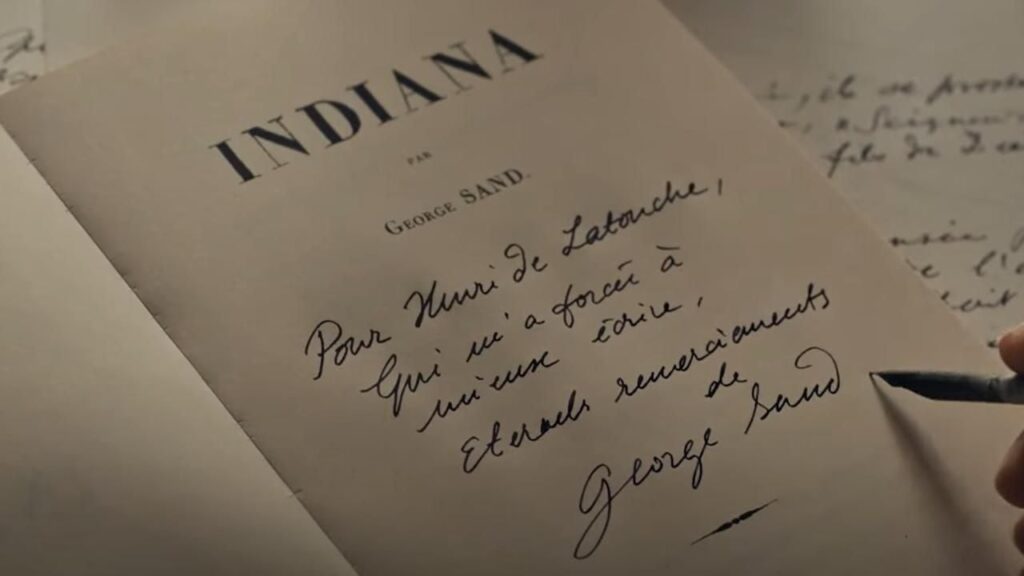 INDIANA
PAR
GEORGE SAND.
Pour Henri de Latouche,
Qui m'a forcée à
mieux écrire,
Eternels remerciements
de
George Sand
, il se
Seigneur
fils de
l'a